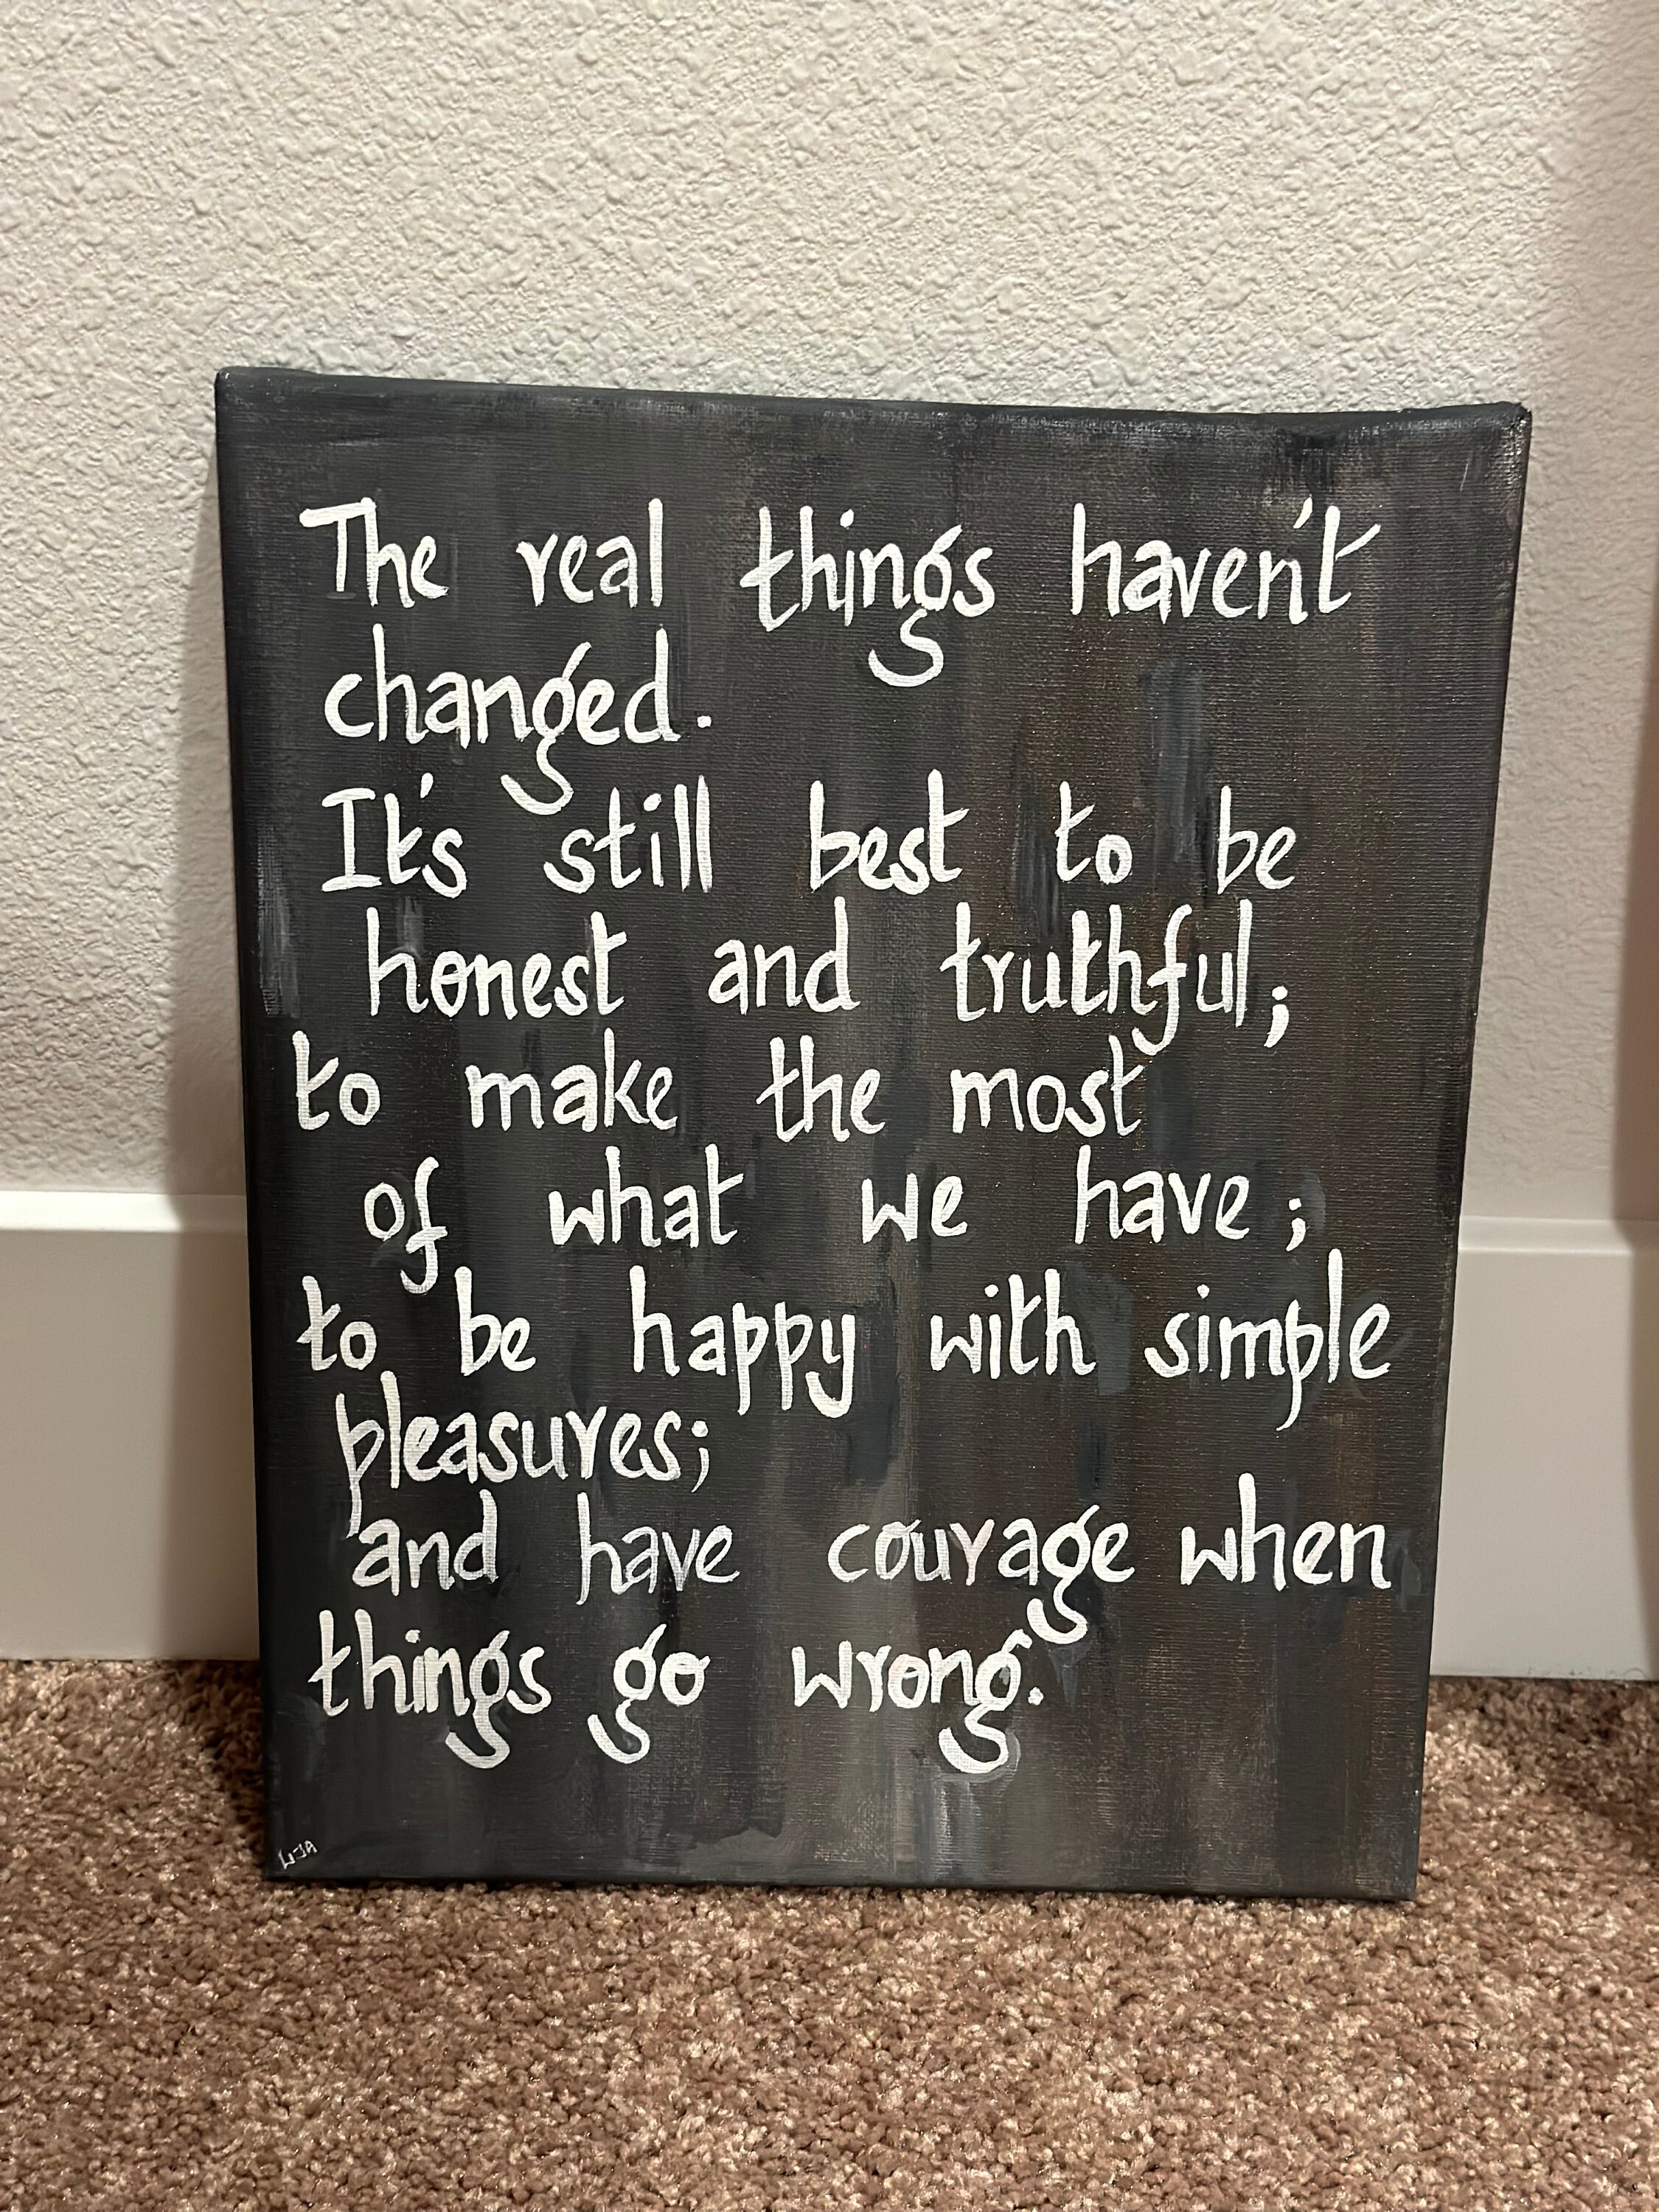 The real things haven't
changed.
It's still best to be
honest and truthful;
to make the most
of what we have;
to be happy with simple
pleasures;
and have courage when
things go wrong.
LJA